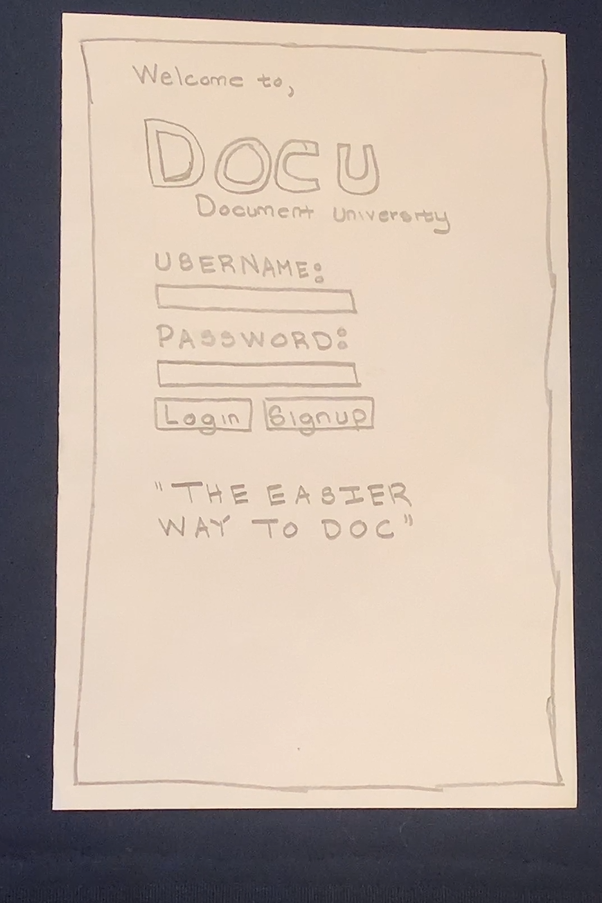 Welcome to,
DOCU
Document University
USERNAME:
PASSWORD:
Login Signup
"THE EASIER
WAY TO DOC"